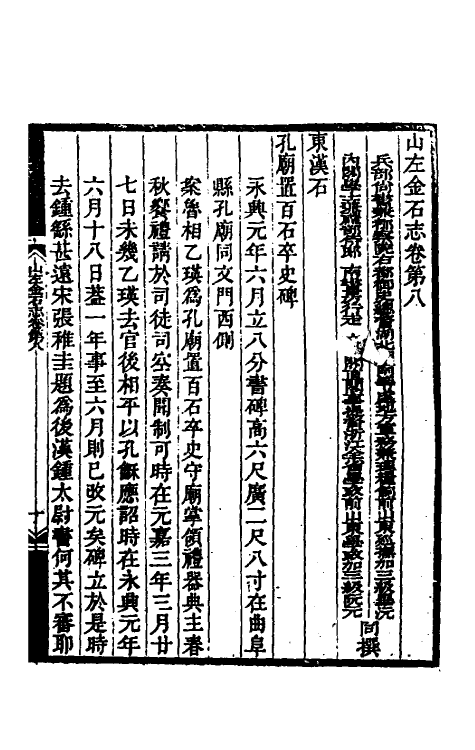 山左金石志卷第八
兵部尚書兼都察院右都御史總督湖北湖南等處地方軍務兼理糧餉前山東巡撫加三級畢沅
內閣學士兼禮部侍郎南書房行走文淵閣直閣事提督浙江全省學政前山東學政加三級阮元
同撰
東漢石
孔廟置百石卒史碑
永興元年六月立八分書碑高六尺廣二尺八寸在曲阜
縣孔廟同文門西側
案魯相乙瑛爲孔廟置百石卒史守廟掌領禮器典主春
秋饗禮請於司徒司空奏聞制可時在元嘉三年三月廿
七日未幾乙瑛去官後相平以孔龢應詔時在永興元年
六月十八日蓋一年事至六月則已改元矣碑立於是時
去鍾繇甚遠宋張稚圭題爲後漢鍾太尉書何其不審耶
山左金石志卷第八